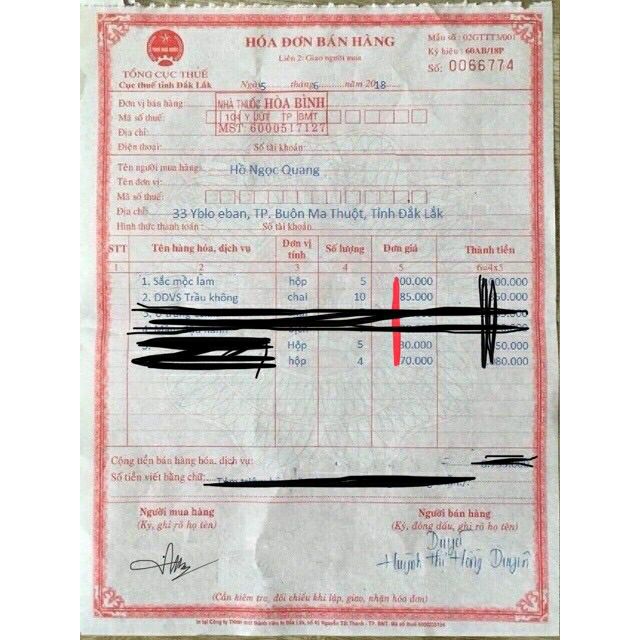 HÓA ĐƠN BÁN HÀNG
Liên 2: Giao người mua
Mẫu số: 02GTTT3/001
Ký hiệu: 60AB/18P
Số: 0066774
TỔNG CỤC THUẾ
Cục thuế tỉnh Đắk Lắk
Ngày 5 tháng 6 năm 2018
Đơn vị bán hàng: NHÀ THUỐC HÒA BÌNH
Mã số thuế: 104 Y JÚT TP BMT
Địa chỉ: MST 6000517127
Điện thoại: Số tài khoản:
Tên người mua hàng: Hồ Ngọc Quang
Tên đơn vị:
Mã số thuế:
Địa chỉ: 33 Yblo eban, TP. Buôn Ma Thuột, Tỉnh Đắk Lắk
Hình thức thanh toán: Số tài khoản:
STT Tên hàng hóa, dịch vụ Đơn vị tính Số lượng Đơn giá Thành tiền
1 2 3 4 5 6=4x5
1. Sắc mộc lâm hộp 5 00.000 00.000
2. DDVS Trầu không chai 10 85.000 50.000
Hộp 5 30.000 50.000
hộp 4 70.000 80.000
Cộng tiền bán hàng hóa, dịch vụ:
Số tiền viết bằng chữ:
Người mua hàng
(Ký, ghi rõ họ tên)
Người bán hàng
(Ký, đóng dấu, ghi rõ họ tên)
Duyên
Huỳnh Thị Hồng Duyên
(Cần kiểm tra, đối chiếu khi lập, giao, nhận hóa đơn)